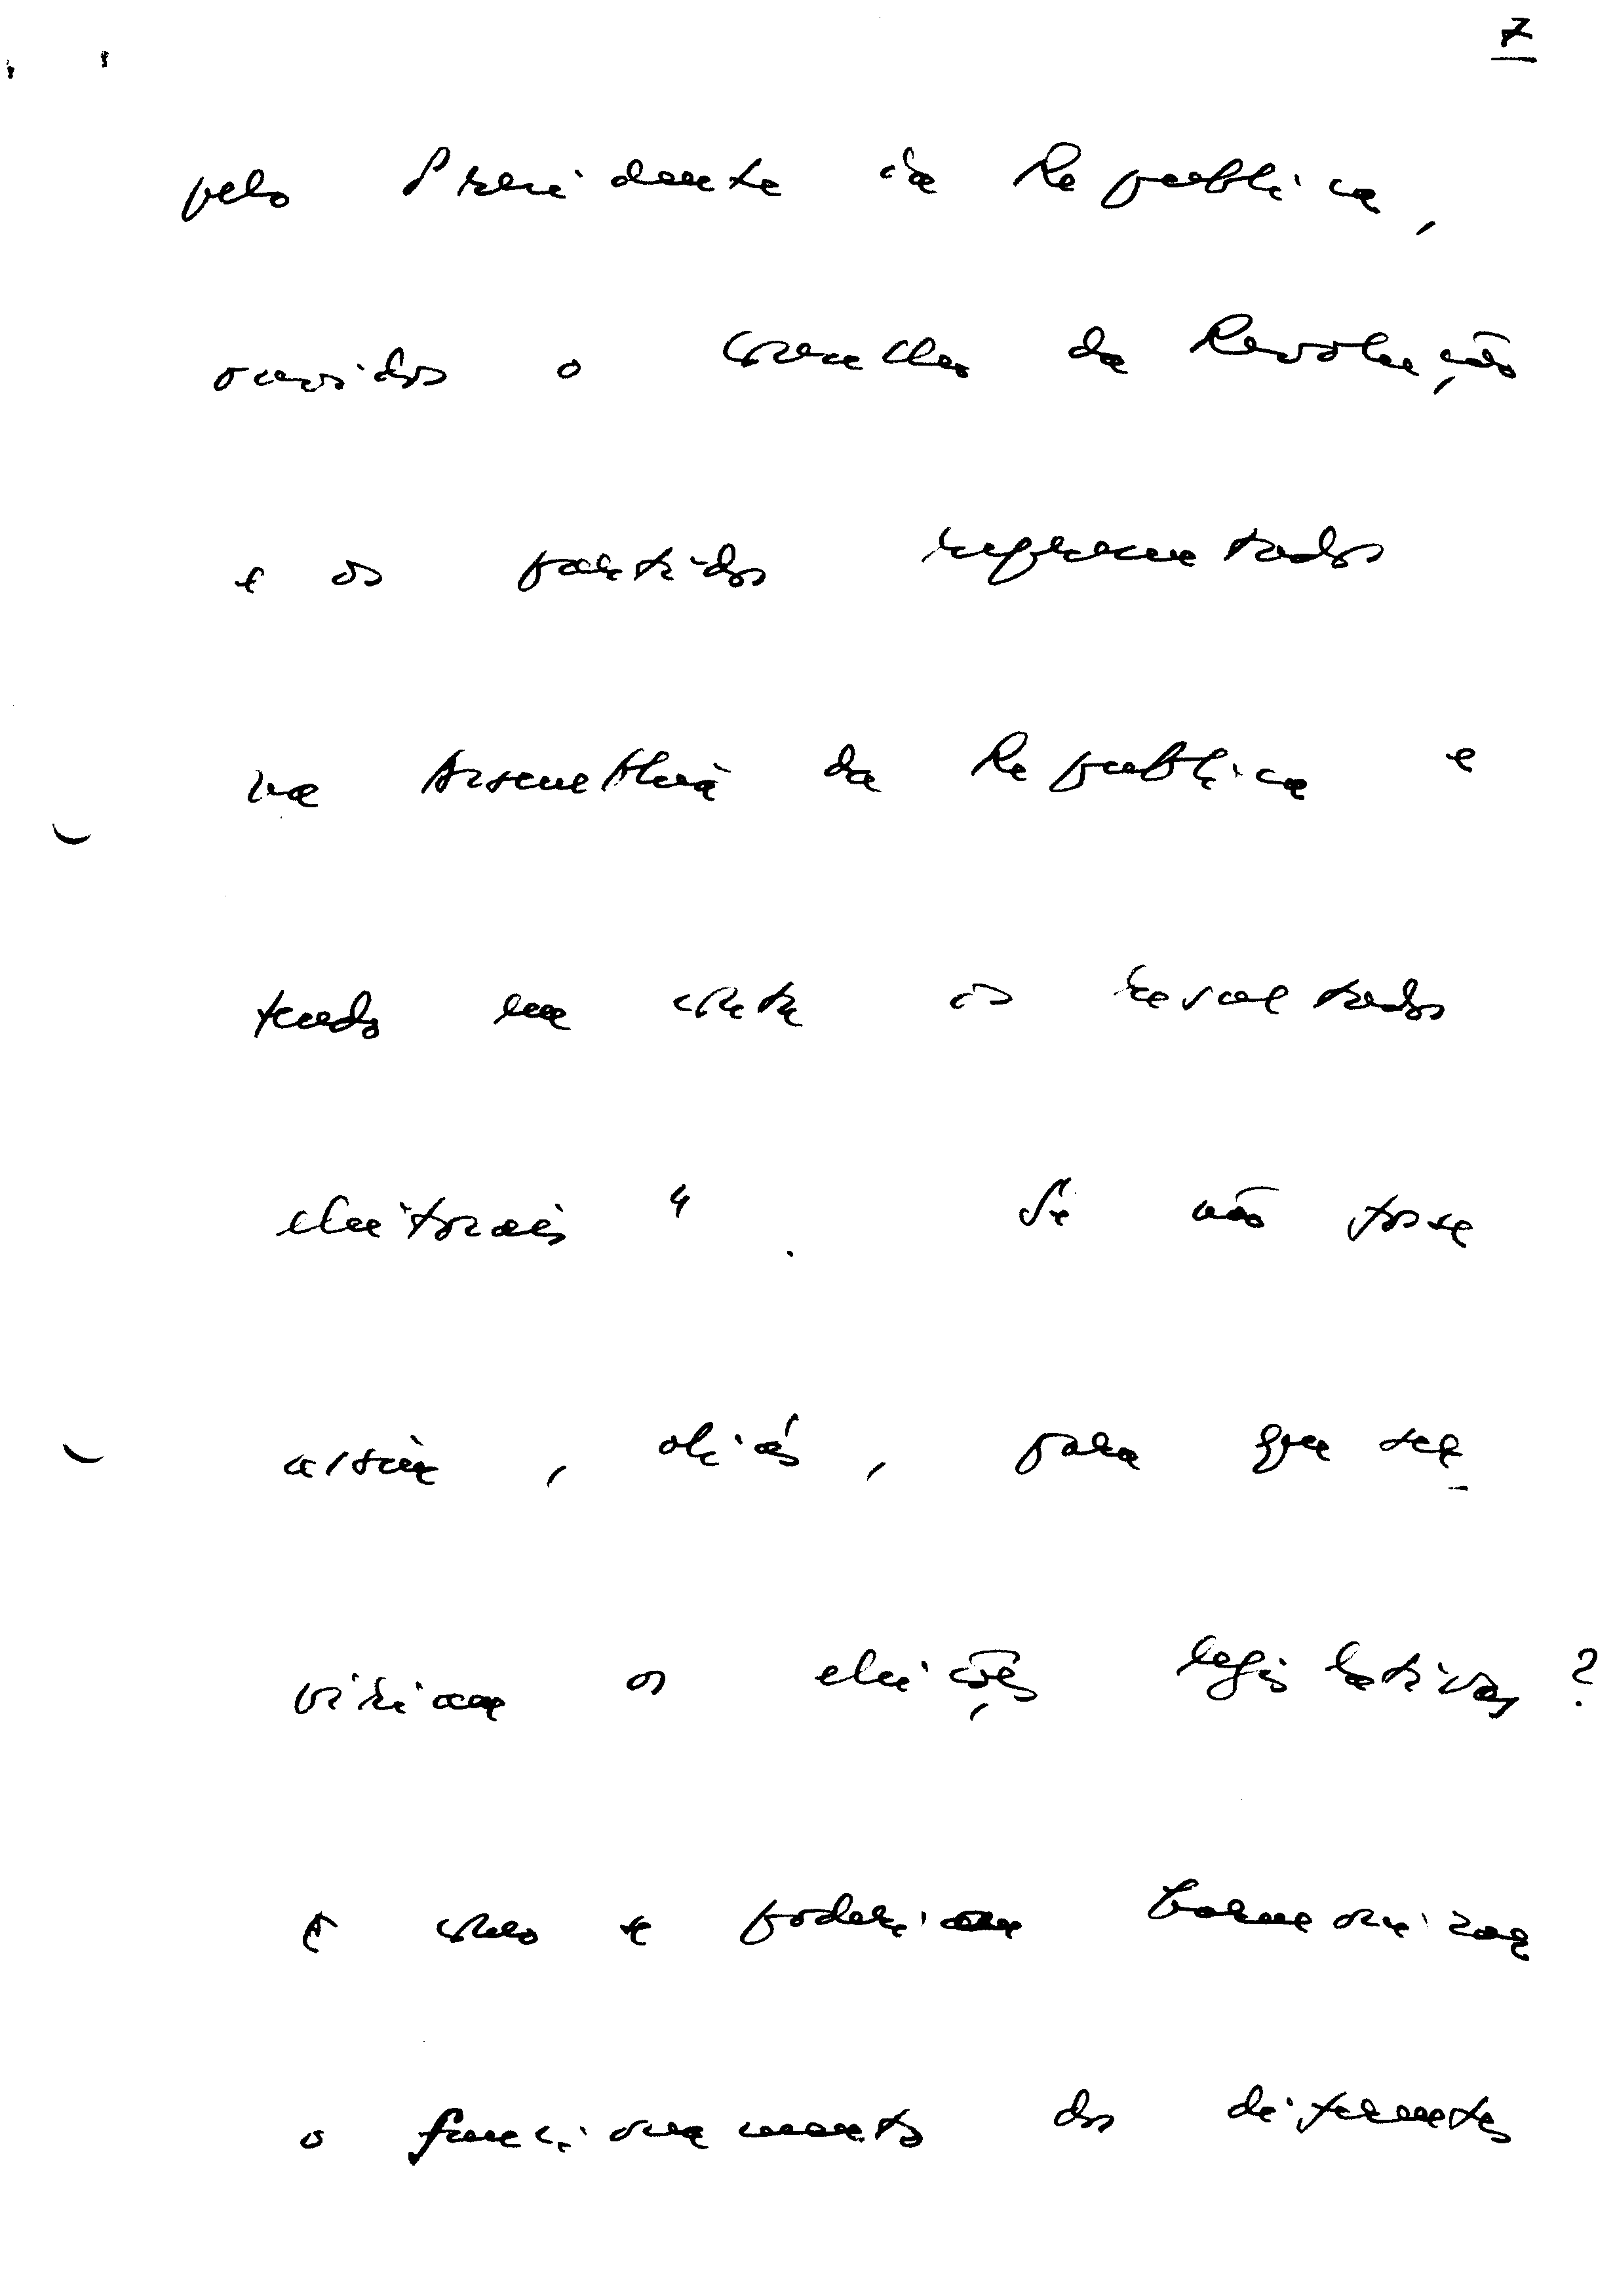 7
pelo Presidente da Republica,
ouvidos o Conselho da Revolução
e os partidos representados
na Assembleia da Republica e
tendo em conta os resultados
eleitorais". Se não fosse
assim, aliás, para que ser-
viriam as eleições legislativas?
E como se poderiam harmonizar
o funcionamento dos diferentes